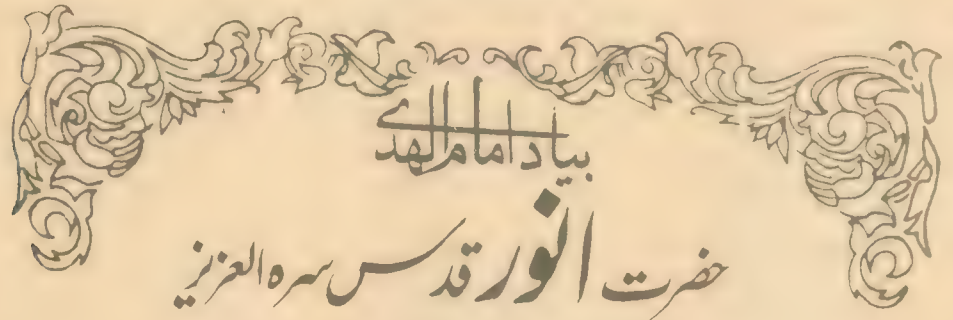 بیاد امام الہدیٰ
حضرت انور قدس سرہ العزیز